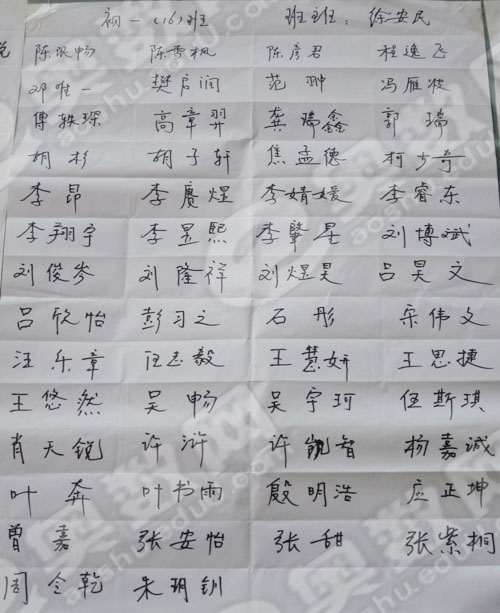 初一(16)班 班主任：徐安民
陈泯畅 陈雪枫 陈彦君 程逸飞
邓唯一 樊启润 范翀 冯雁波
傅轶琛 高章羿 龚瑞鑫 郭瑞
胡杉 胡子轩 焦孟德 柯少奇
李昂 李赓煜 李婧媛 李睿东
李翔宇 李昱熙 李肇星 刘博斌
刘俊岑 刘隆祥 刘煜昊 吕昊文
吕欣怡 彭习之 石彤 宋伟文
汪乐章 汪志毅 王慧妍 王思捷
王悠然 吴畅 吴宇珂 伍斯琪
肖天锐 许浒 许凯智 杨嘉诚
叶奔 叶书雨 殷明浩 应正坤
曾嘉 张安怡 张甜 张紫桐
周令乾 朱玥钏
奥数网
aoshu.eduu.com